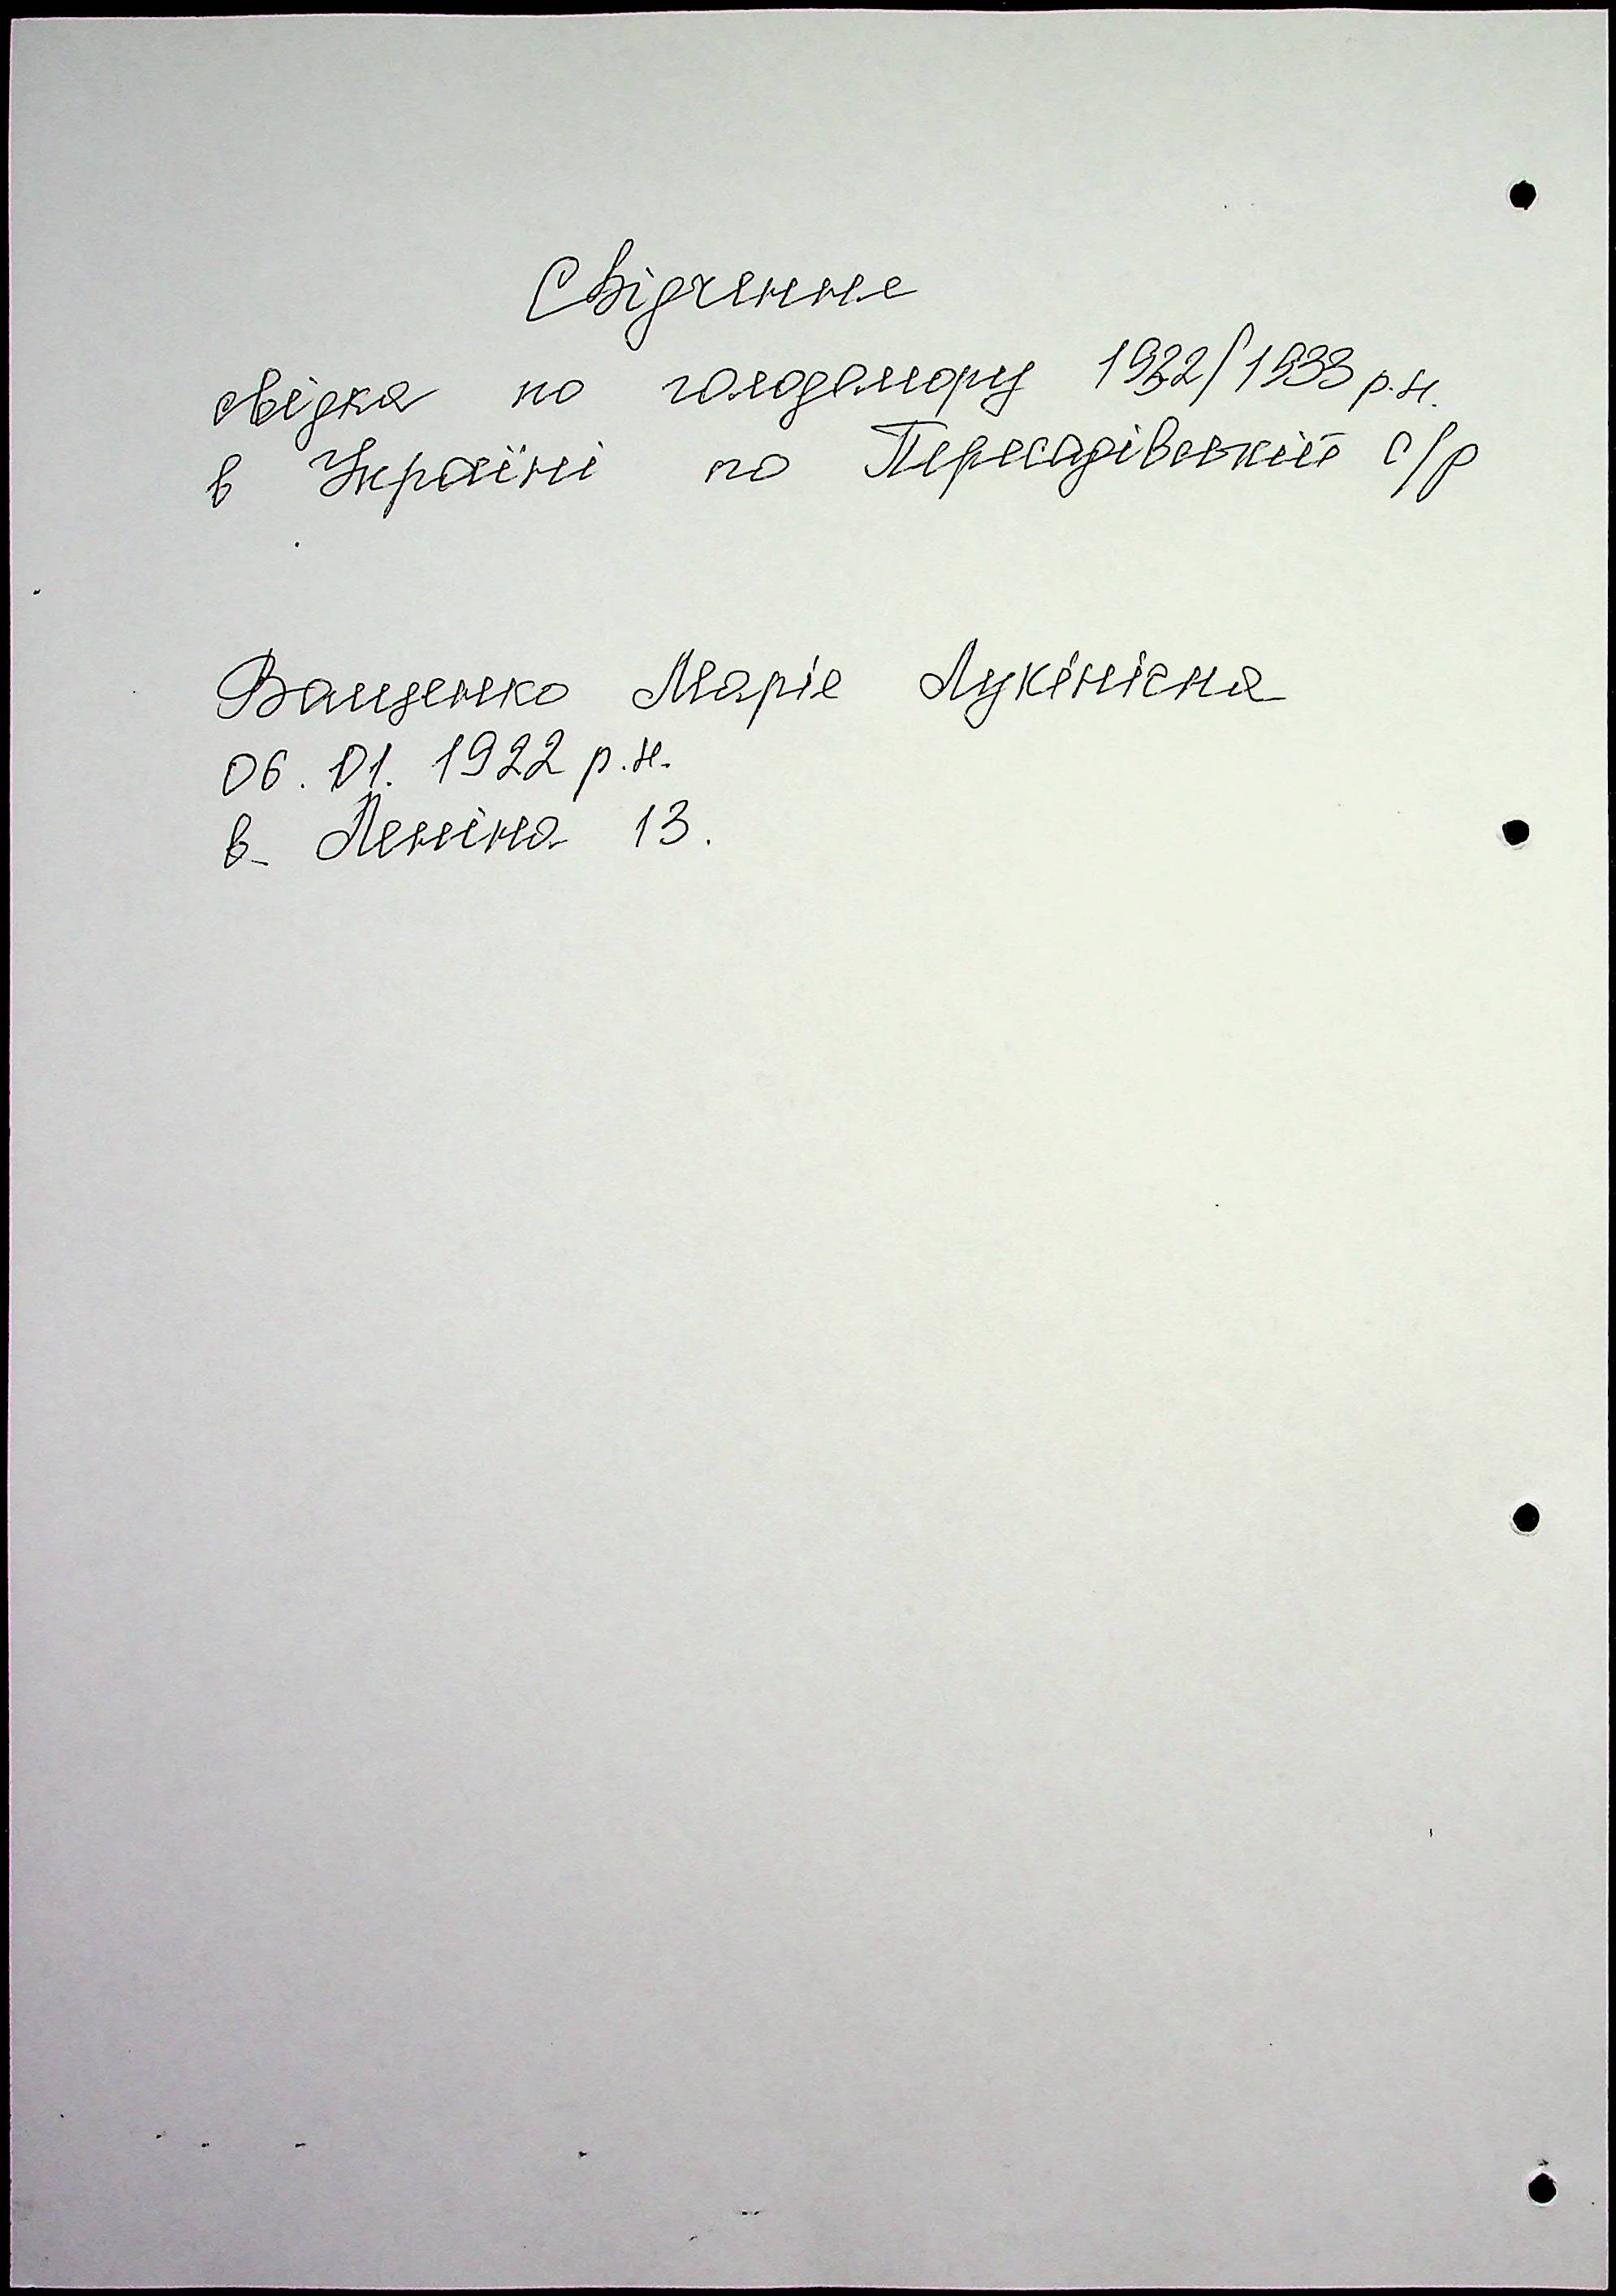 Свідчення
свідка по голодомору 1932/1933 р.н.
в Україні по Пересадівській с/р
Ващенко Марія Лукінісна
06.01.1922 р.н.
в. Леніна 13.